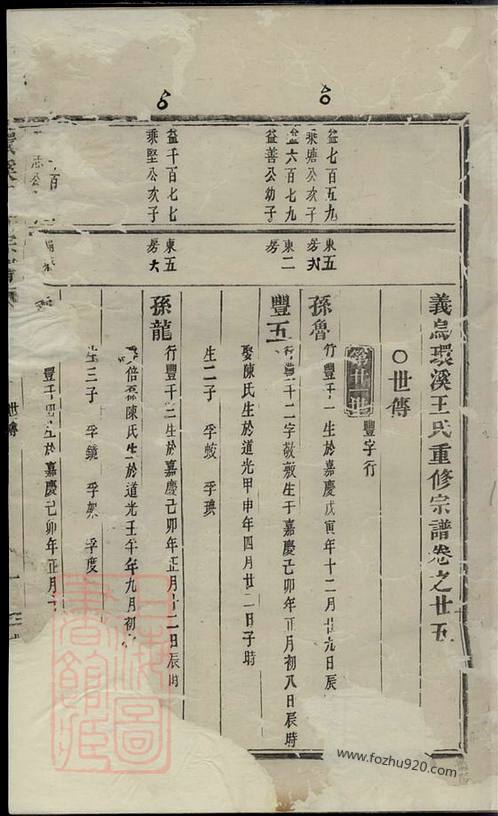 義烏環溪王氏重修宗譜卷之廿五
○世傳
第廿世
豐字行
益七百五九
乘塘公次子
東五
房弐
孫魯
行豐千一生於嘉慶戊寅年十二月廿九日辰
益六百七九
益善公幼子
東二
房
豐五
千二字敬敷生于嘉慶己卯年正月初八日辰時
娶陳氏生於道光甲申年四月廿二日子時
生二子 孚 孚琪
益千百七七
乘堅公次子
東五
房六
孫龍
行豐千三生於嘉慶己卯年正月十二日辰時
倍磊陳氏生於道光壬午年九月初
三子 孚鏡 孚架 孚度
豐千四生於嘉慶己卯年正月
世傳
上海圖書館
www.fozhu920.com